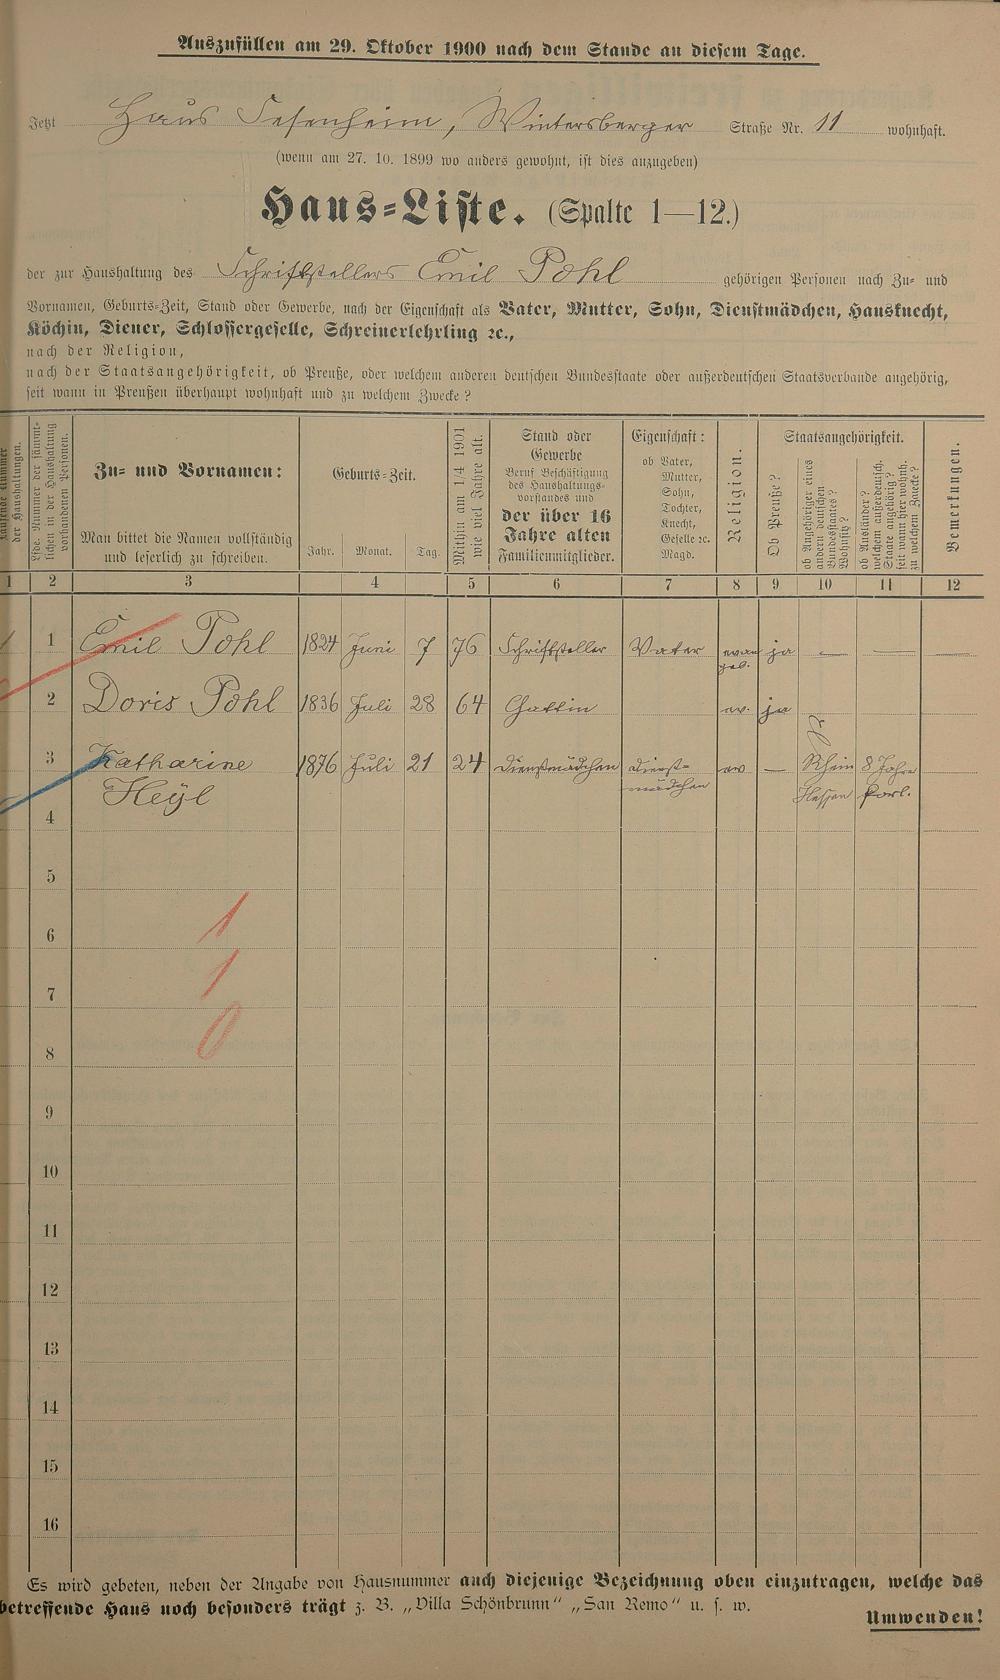 Auszufüllen am 29. Oktober 1900 nach dem Stande an diesem Tage.
Jetzt Haus Sesenheim, Wintersberger Straße Nr. 11 wohnhaft.
(wenn am 27. 10. 1899 wo anders gewohnt, ist dies anzugeben)
Haus-Liste. (Spalte 1—12.)
der zur Haushaltung des Schriftstellers Emil Pohl gehörigen Personen nach Zu- und
Vornamen, Geburts-Zeit, Stand oder Gewerbe, nach der Eigenschaft als Vater, Mutter, Sohn, Dienstmädchen, Hausknecht,
Köchin, Diener, Schlossergeselle, Schreinerlehrling ec.,
nach der Religion,
nach der Staatsangehörigkeit, ob Preuße, oder welchem anderen deutschen Bundesstaate oder außerdeutschen Staatsverbande angehörig,
seit wann in Preußen überhaupt wohnhaft und zu welchem Zwecke?
Laufende Nummer
der Haushaltungen.
Lfde. Nummer der sämmt-
lichen in der Haushaltung
vorhandenen Personen.
Zu- und Vornamen:
Man bittet die Namen vollständig
und leserlich zu schreiben.
Geburts-Zeit.
Jahr. Monat. Tag.
Mithin am 1/4 1901
wie viel Jahre alt.
Stand oder
Gewerbe
Beruf Beschäftigung
des Haushaltungs-
vorstandes und
der über 16
Jahre alten
Familienmitglieder.
Eigenschaft:
ob Vater,
Mutter,
Sohn,
Tochter,
Knecht,
Geselle ec.
Magd.
Religion.
Staatsangehörigkeit.
Ob Preuße?
ob Angehöriger eines
andern deutschen
Bundesstaates?
Wohnsitz?
ob Ausländer?
welchem außerdeutsch.
Staate angehörig?
seit wann hier wohnh.
zu welchem Zwecke?
Bemerkungen.
1 2 3 4 5 6 7 8 9 10 11 12
1 Emil Pohl 1824 Juni 7 76 Schriftsteller Vater evan ja — — —
gel.
2 Doris Pohl 1836 Juli 28 64 Gattin ev. ja
3 Katharine 1876 Juli 21 24 Dienstmädchen Dienst- ev — Rhein 8 Jahre
Heÿl mädchen Hessen
4
5
6 1
7 1
8 0
9
10
11
12
13
14
15
16
Es wird gebeten, neben der Angabe von Hausnummer auch diejenige Bezeichnung oben einzutragen, welche das
betreffende Haus noch besonders trägt z. B. „Villa Schönbrunn“ „San Remo“ u. s. w.
Umwenden!